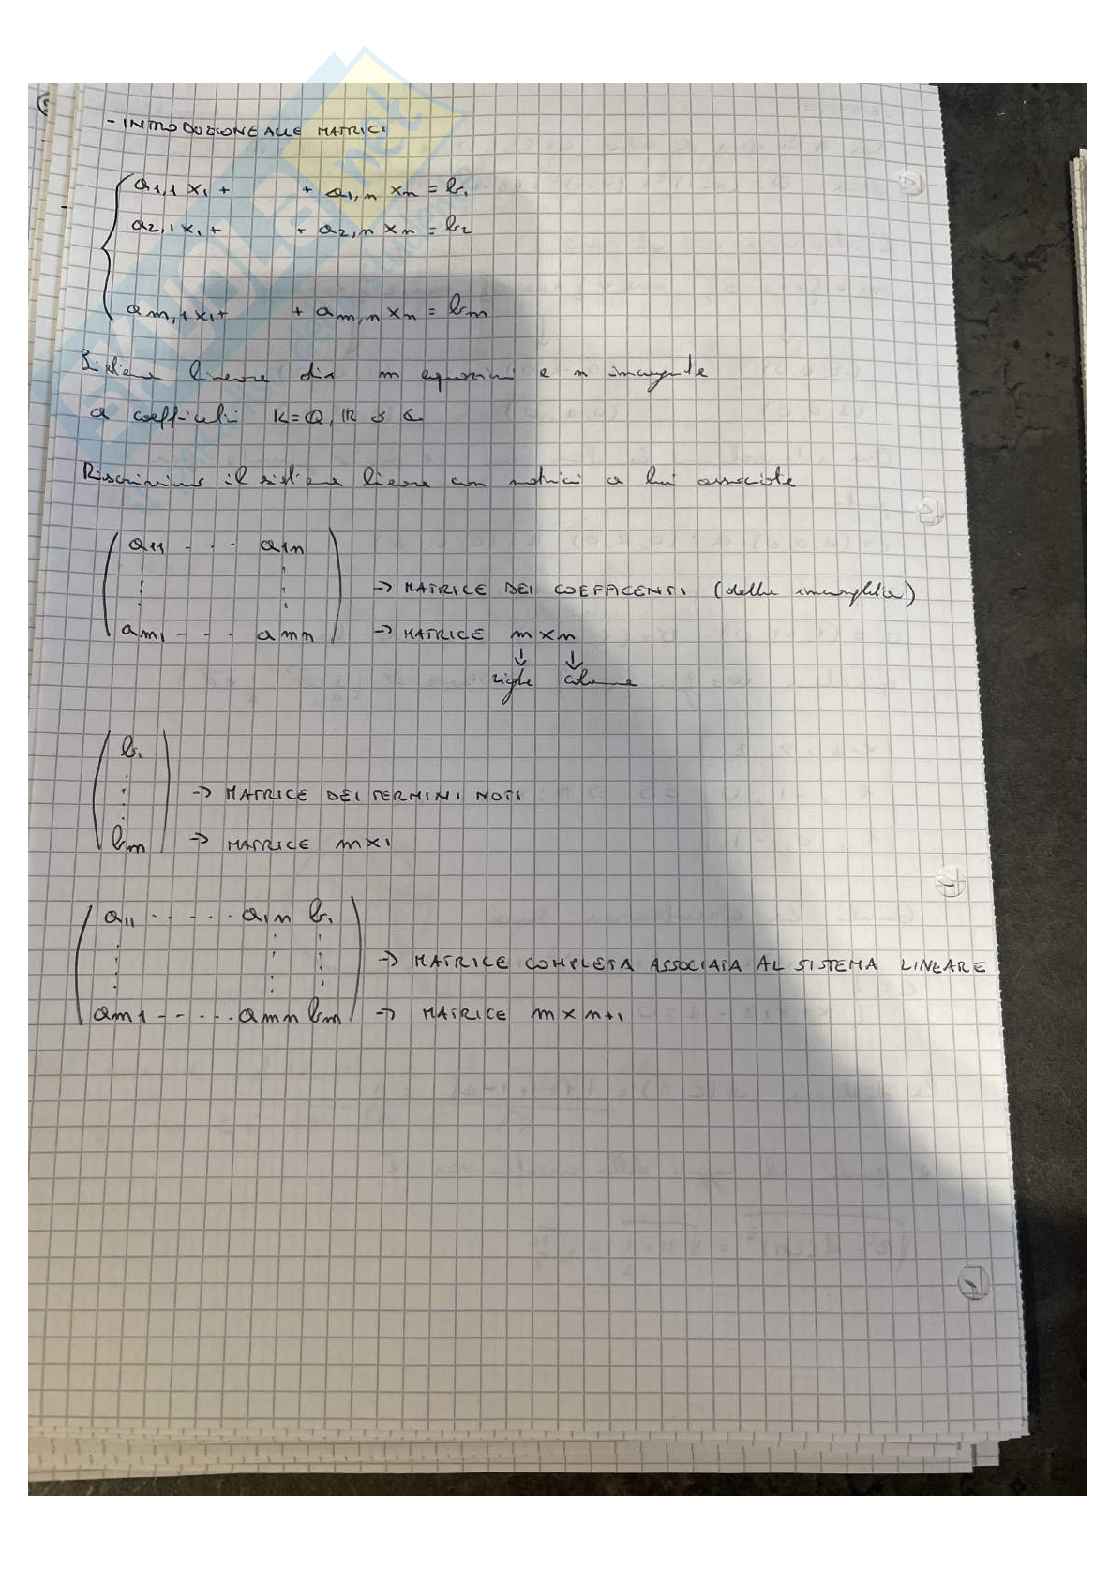 - INTRODUZIONE ALLE MATRICI
a1,1 x1 + + a1,n xn = b1
a2,1 x1 + + a2,n xn = b2
am,1 x1 + + am,n xn = bm
Sistema lineare di m equazioni e n incognite
a coefficienti K = Q, R o C
Riscriviamo il sistema lineare con matrici a lui associate
a11 - - - a1n
-> MATRICE DEI COEFFICENTI (delle incognite)
am1 - - - amn -> MATRICE m x n
↓ ↓
righe colonne
b1
-> MATRICE DEI TERMINI NOTI
bm -> MATRICE m x 1
a11 - - - - - a1n b1
-> MATRICE COMPLETA ASSOCIATA AL SISTEMA LINEARE
am1 - - - - - amn bm -> MATRICE m x n+1
skuola.net